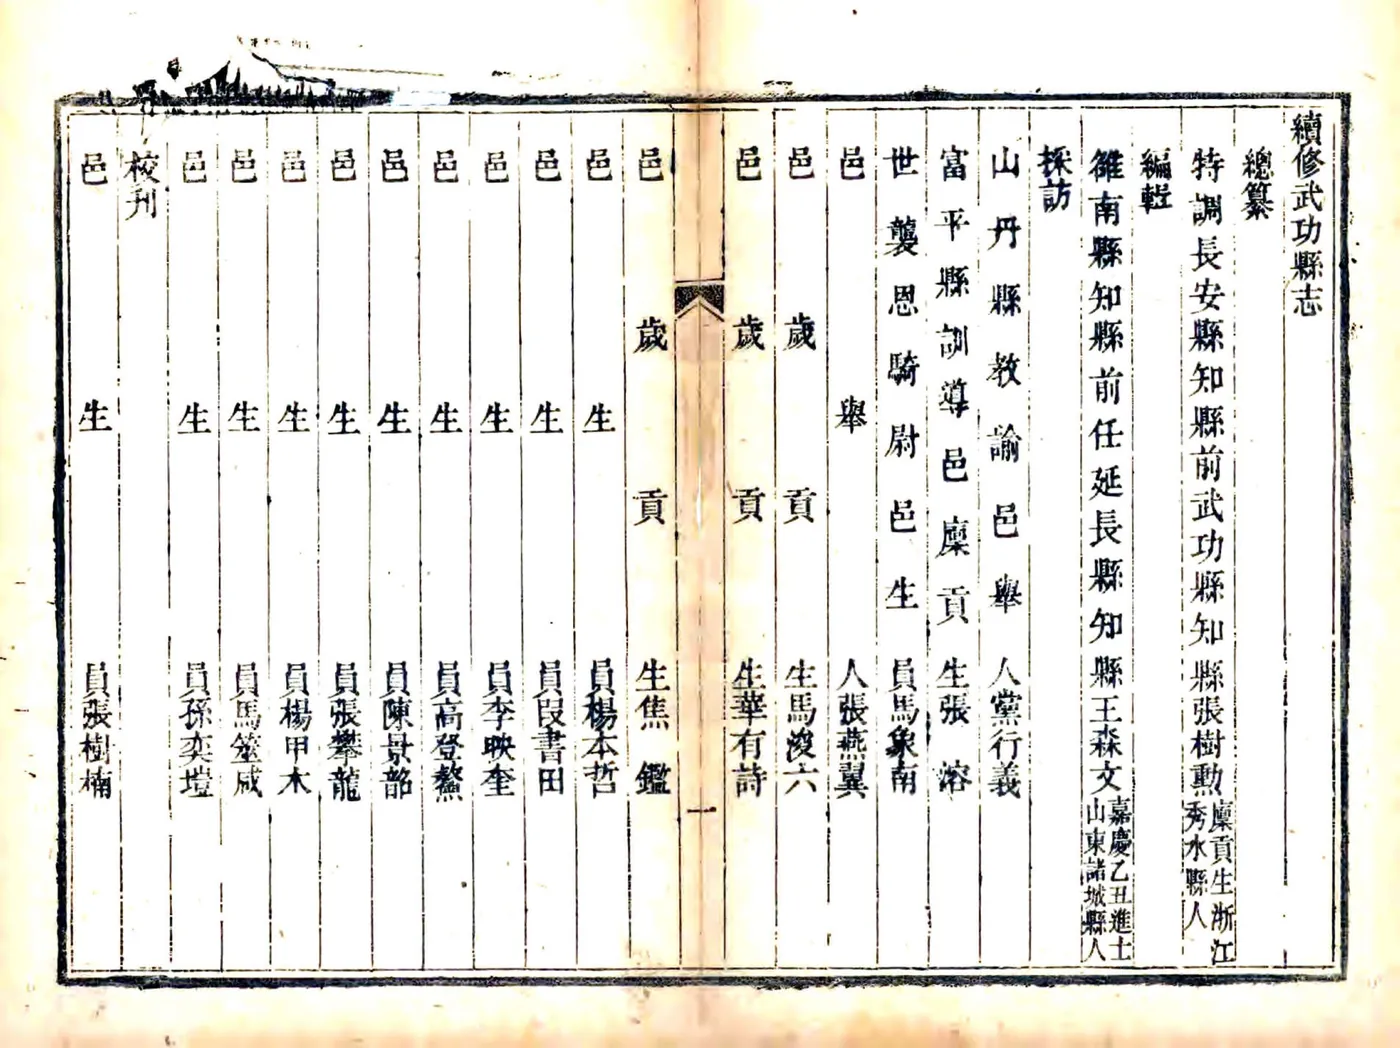 續修武功縣志
總纂
特調長安縣知縣前武功縣知縣張樹勲廩貢生浙江秀水縣人
編輯
雒南縣知縣前任延長縣知縣王森文嘉慶乙丑進士山東諸城縣人
採訪
山丹縣教諭邑舉人黨行義
富平縣訓導邑廩貢生張溶
世襲恩騎尉邑生員馬象南
邑舉人張燕翼
邑歲貢生馬浚六
邑歲貢生華有詩
一
邑歲貢生焦鑑
邑生員楊本哲
邑生員段書田
邑生員李映奎
邑生員高登鰲
邑生員陳景韶
邑生員張攀龍
邑生員楊甲木
邑生員馬筮咸
邑生員孫奕塏
校刋
邑生員張樹楠